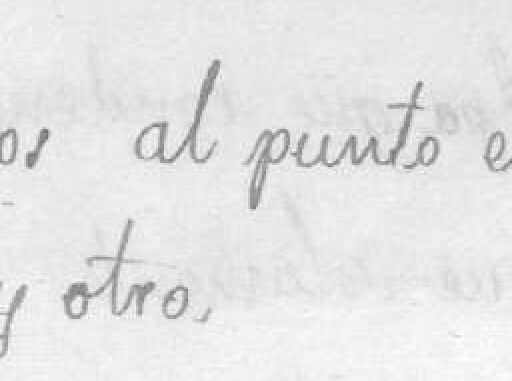 os al punto e
y otro.